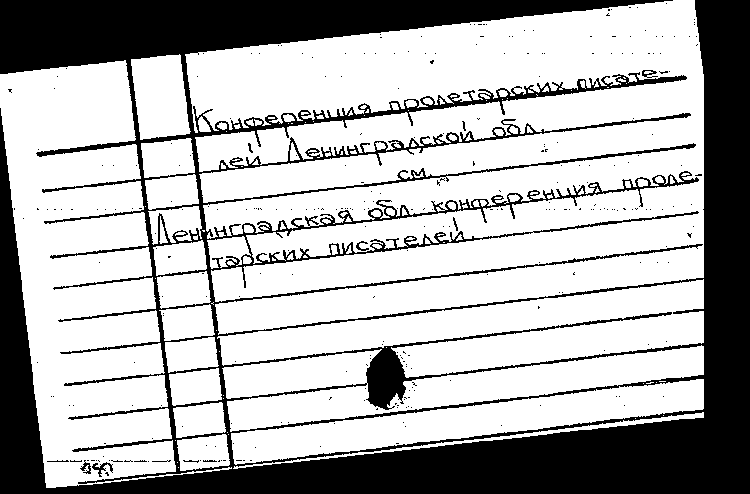 Конференция пролетарских писате-
лей Ленинградской обл.
см.
Ленинградская обл. конференция проле-
тарских писателей.